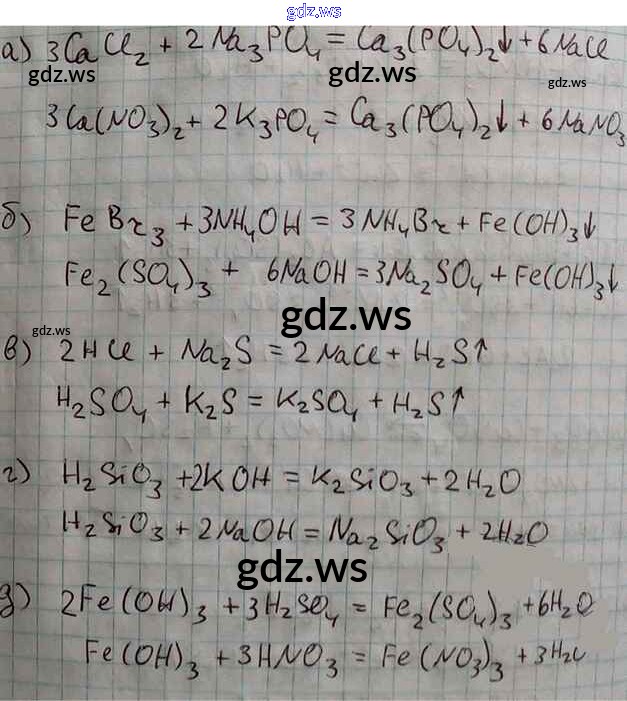 gdz.ws
а) 3CaCl₂ + 2Na₃PO₄ = Ca₃(PO₄)₂↓ + 6NaCl
gdz.ws gdz.ws gdz.ws
3Ca(NO₃)₂ + 2K₃PO₄ = Ca₃(PO₄)₂↓ + 6NaNO₃
б) FeBr₃ + 3NH₄OH = 3NH₄Br + Fe(OH)₃↓
Fe₂(SO₄)₃ + 6NaOH = 3Na₂SO₄ + Fe(OH)₃↓
gdz.ws
gdz.ws
в) 2HCl + Na₂S = 2NaCl + H₂S↑
H₂SO₄ + K₂S = K₂SO₄ + H₂S↑
г) H₂SiO₃ + 2KOH = K₂SiO₃ + 2H₂O
H₂SiO₃ + 2NaOH = Na₂SiO₃ + 2H₂O
gdz.ws
д) 2Fe(OH)₃ + 3H₂SO₄ = Fe₂(SO₄)₃ + 6H₂O
Fe(OH)₃ + 3HNO₃ = Fe(NO₃)₃ + 3H₂O